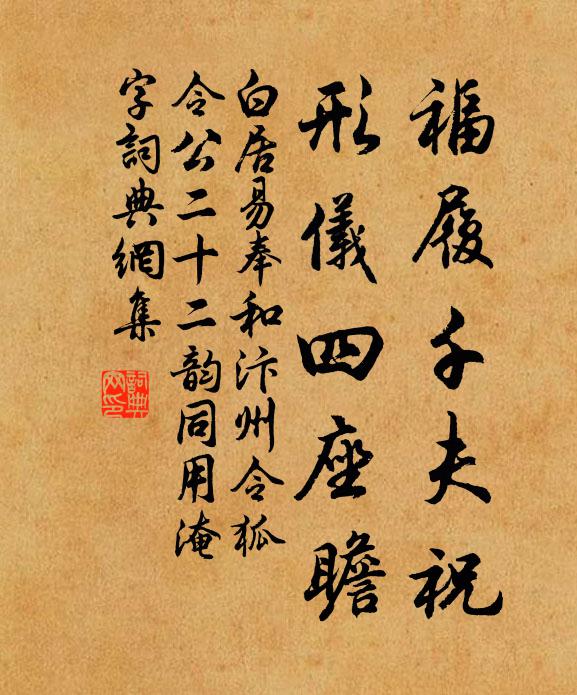 福履千夫祝
形儀四座瞻
白居易奉和汴州令狐
令公二十二韵同用淹
字詞典網集
詞典
网印